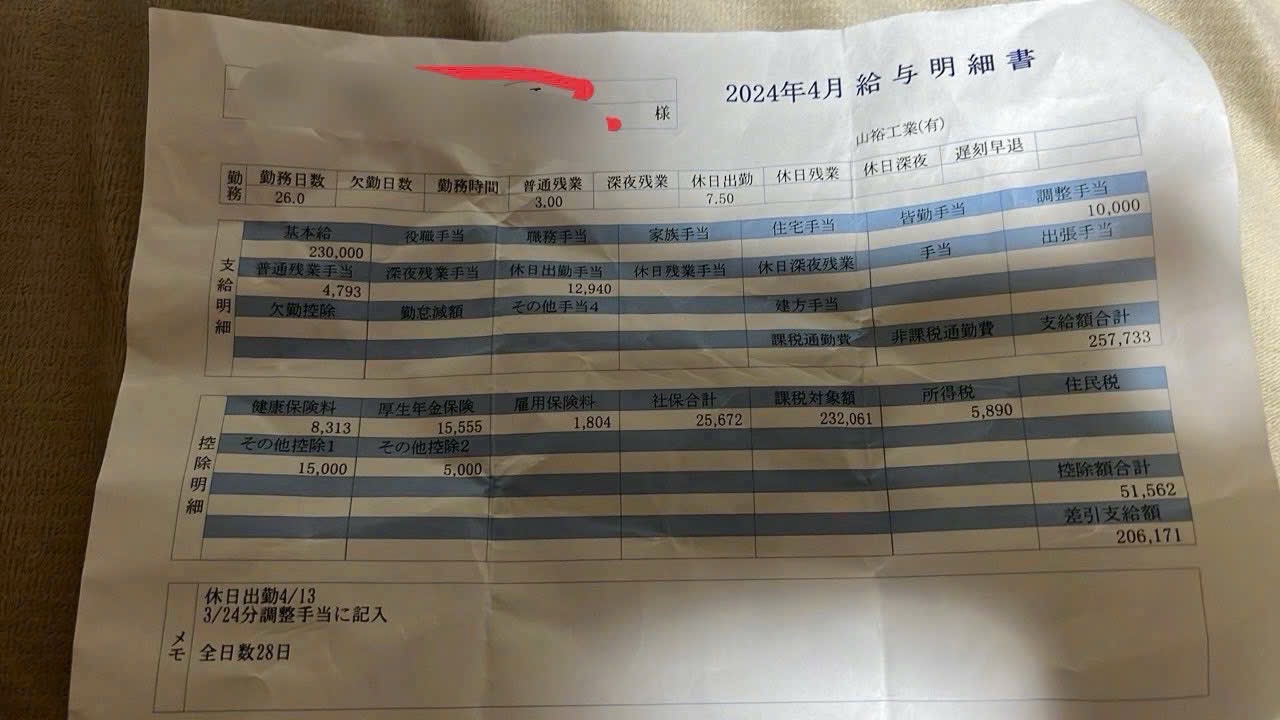 2024年4月 給与明細書
様
山裕工業(有)
勤務 勤務日数 欠勤日数 勤務時間 普通残業 深夜残業 休日出勤 休日残業 休日深夜 遅刻早退
26.0 3.00 7.50
支給明細
基本給 役職手当 職務手当 家族手当 住宅手当 皆勤手当 調整手当
230,000 10,000
普通残業手当 深夜残業手当 休日出勤手当 休日残業手当 休日深夜残業 手当 出張手当
4,793 12,940
欠勤控除 勤怠減額 その他手当4 建方手当
課税通勤費 非課税通勤費 支給額合計
257,733
控除明細
健康保険料 厚生年金保険 雇用保険料 社保合計 課税対象額 所得税 住民税
8,313 15,555 1,804 25,672 232,061 5,890
その他控除1 その他控除2
15,000 5,000
控除額合計
51,562
差引支給額
206,171
メモ
休日出勤4/13
3/24分調整手当に記入
全日数28日